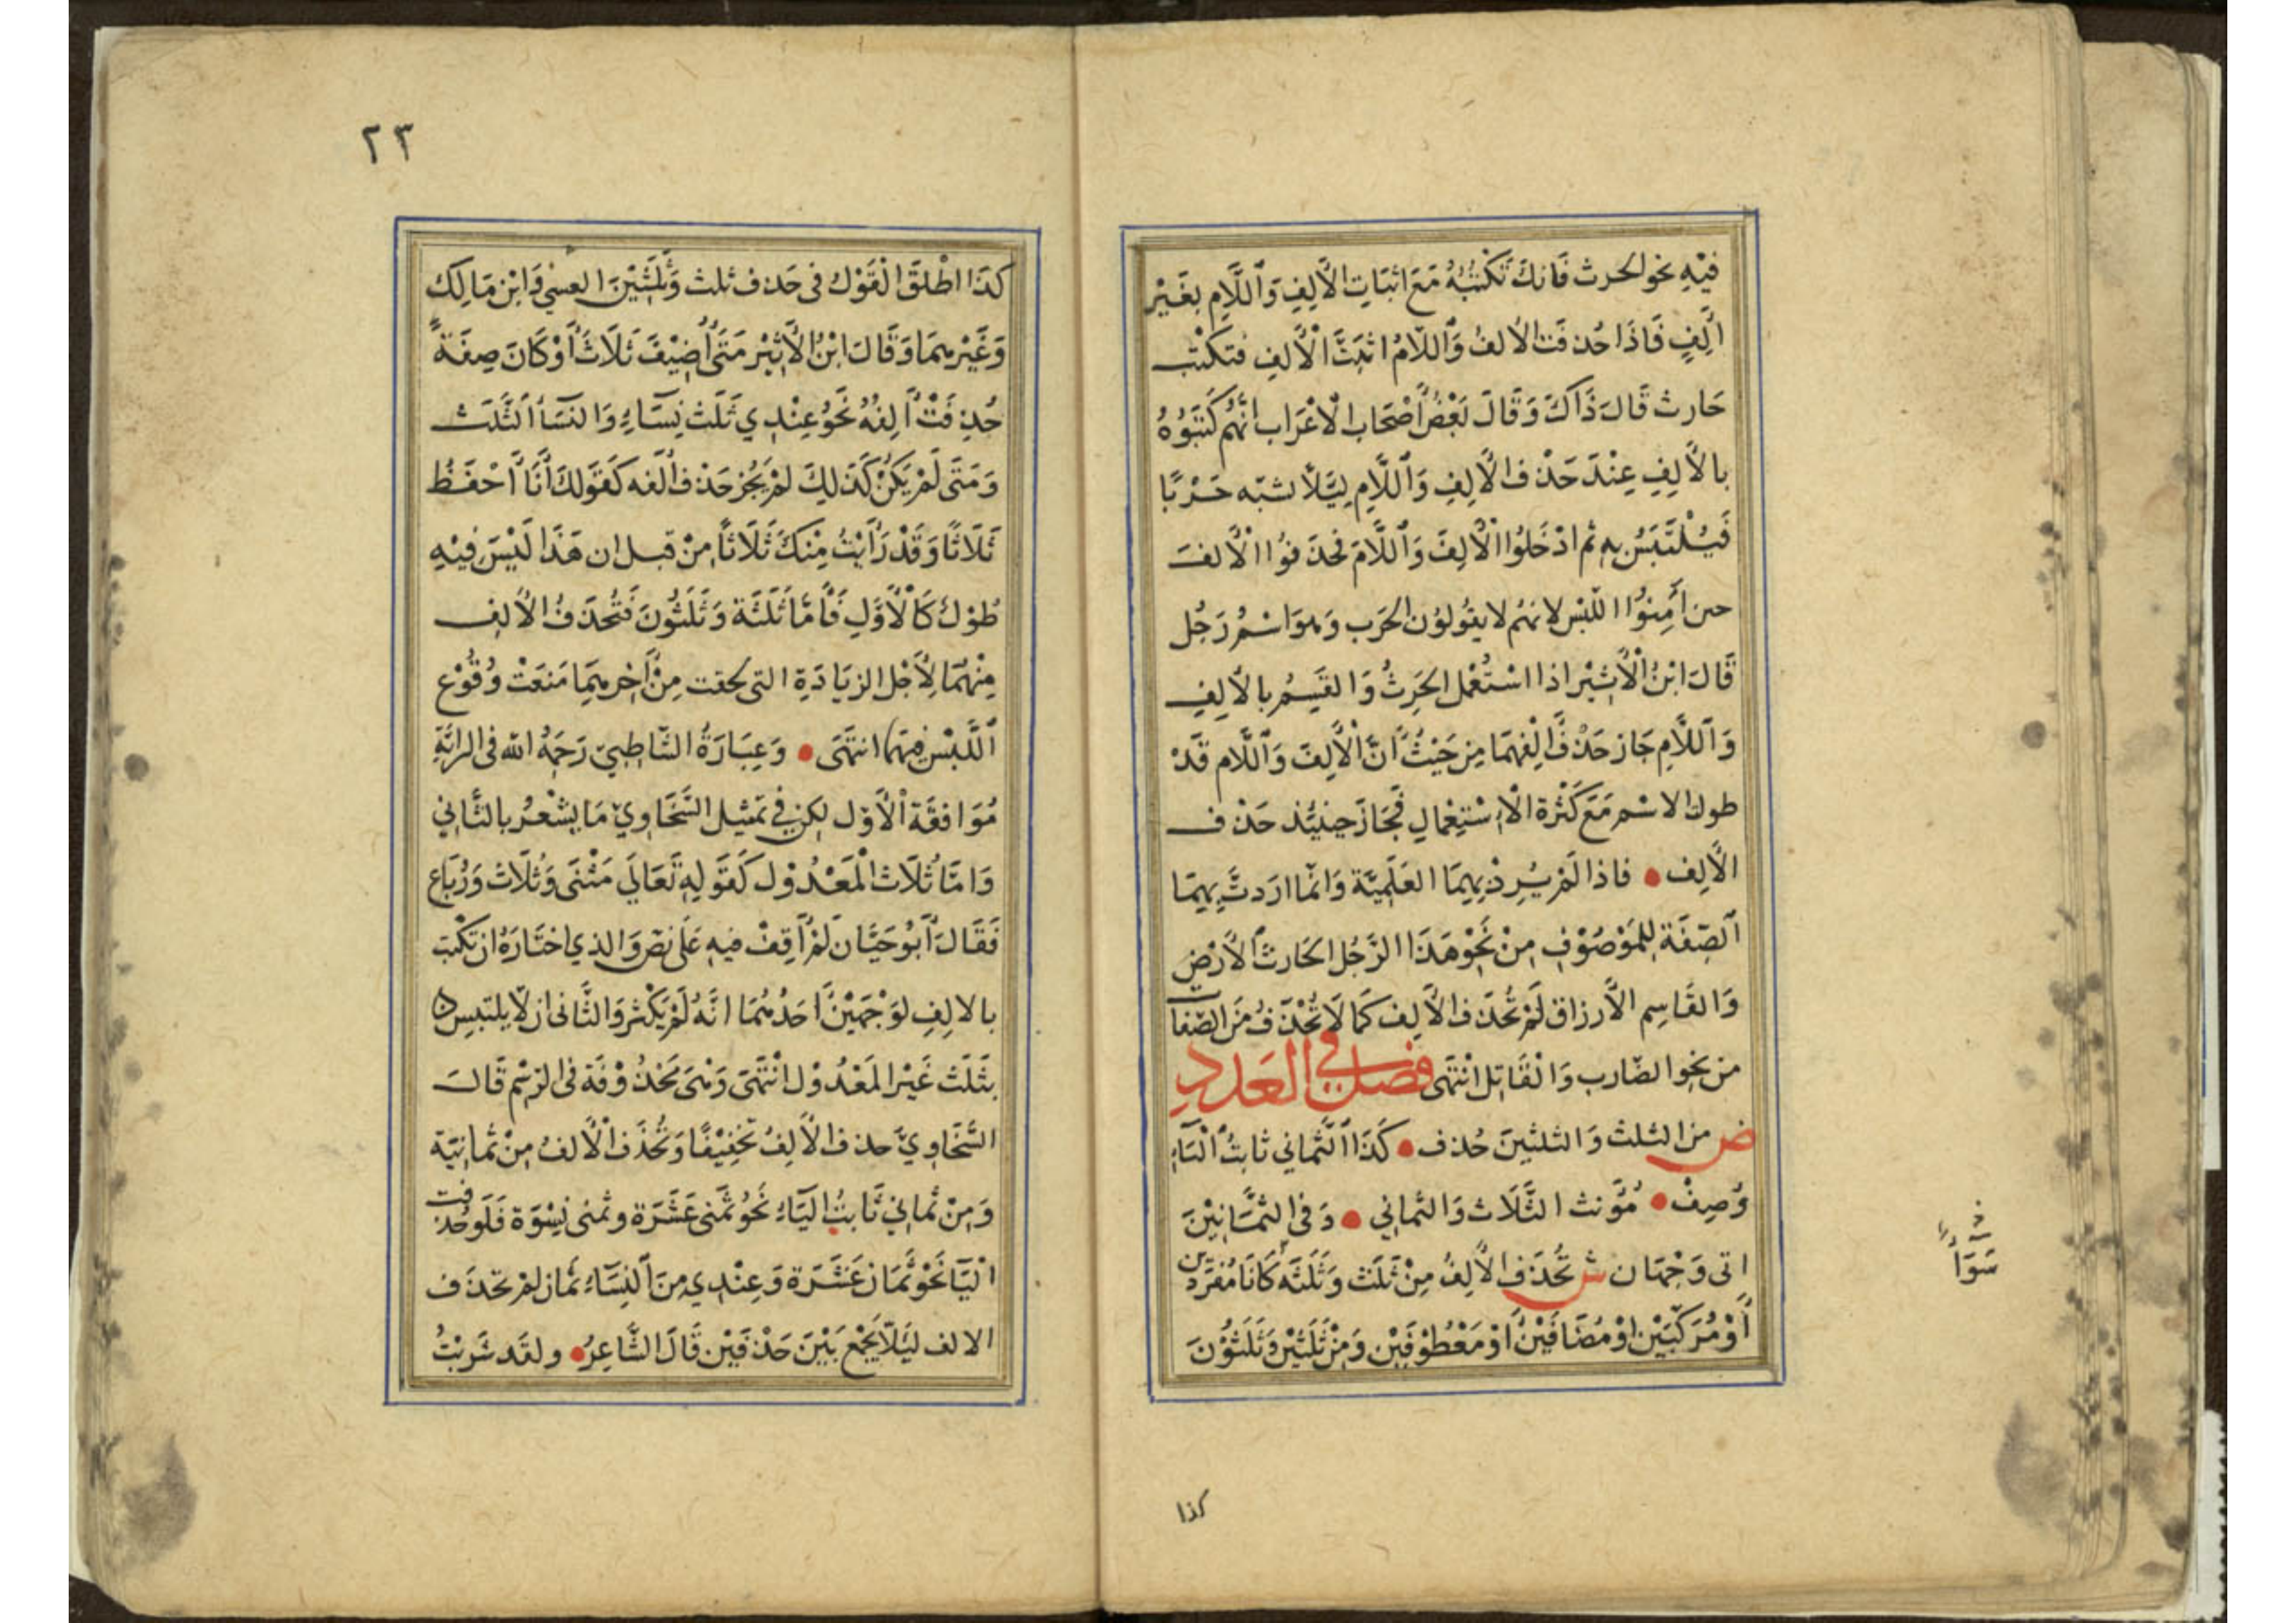 فِيْهِ نحو الحرث فَاِنكَ تَكْتُبُهُ مَعَ اثبَاتِ الْأَلِفِ وَاللَّامِ بِغَيْرِ
اَلِفٍ فَاذَا حُذفَت الألفُ وَاللَّامُ اثبتَّ الْأَلِفِ فتكتب
حَارث قَالَ ذَاكَ وَقَالَ بَعْضُ أَصْحَاب الْاعْرَاب انَّهُم كَتَبُوهُ
بالْأَلِفِ عِنْدَ حَذْف الْأَلِفِ وَاللَّامِ لِيَلَّا شبّه حَرْبًا
فَيُلْتَبَسُ بِهِ ثم ادْخَلُوا الْأَلِفَ وَاللَّامَ فحذَفوُا الْألفَ
حن أَمِنوُا اللّبْس لانهُم لا يقُولوُن الحَرَب وَهوَ اسْمُ رَجُل
قَالَ ابْنُ الْأَثِيْر اذا اسْتُعْمل الحَرِثُ وَالقَسِمُ بالْأَلِفِ
وَاللَّامِ جَاز حَذْفُ أَلِفهمَا مِن حَيْثُ انَّ الْأَلِفَ وَاللَّام قَدْ
طوك الاسْمِ مَعَ كَثْرَة الْاسْتِعْمالِ فَجَازَ حينئذ حَذْف
الْأَلِف • فاذا لَمْ يُرِدْ بِهِمَا العَلَمِيَّة وَانّما اردتَّ بِهِمَا
الصِّفَة لِلمَوْصُوْفِ مِنْ نَحْوِ هَذَا الرَّجُل الحَارث الْأَرْضِ
وَالقَاسِم الْأَرزاق لَمْ تُحْذَف الْأَلِف كَمَا لَا تُحْذَفُ مِنَ الصّفات
من نحِو الضّارب وَالْقَاتِل انْتَهَى فصل في العَدَدِ
ض من الثلث وَالثلثينَ حُذف • كَذَا الثَّماني ثابتُ الْيَاءِ
وُصِفْ • مُؤنث الثَّلَاث وَالثماني • وَفى الثمَانِيْنَ
اتى وَجْهَان ش تُحْذَف الْأَلِفُ مِنْ ثَلَث وَثَلَثَه كَانَا مُفرَدَين
أَوْ مُرَكَّبَيْن اوْ مُضَافَيْن أَوْ مَعْطُوْفَيْن وَمِنْ ثَلَثَيْن وَثَلَثوُنَ
سَوَاً
كذا
٢٣
كَذَا اطْلقَ الْقَوْل فى حَذف ثلث وَثَلَثَيْنَ وَابْن مَالِك
وَغَيْرهمَا وَقَالَ ابْنُ الْأَثِيْر مَتَى أُضِيْفَ ثَلَاث أَوْ كَانَ صِفَةً
حُذِفَتْ أَلِفُهُ نَحْوُ عِنْدِي ثَلَث نِسَاءٍ وَالنسَاُ الثَّلَث
وَمَتَى لَمْ يَكُنْ كَذَلِكَ لَمْ يَجُز حَذف ألفه كَقَولكَ أَنَا أَحْفَظُ
ثَلَاثًا وَقَدْ رَأَيْتُ مِنْكَ ثَلَاثًا مِنْ قبل ان هَذَا لَيْسَ فِيْهِ
طُوْل كَالْأَوَّلِ فَأَمَّا ثَلَثَة وَثَلَثُونَ فَتُحْذَفُ الْألف
مِنْهُمَا لِأَجْل الزيَادَةِ التى لحقت مِنْ أَخِرهِمَا مَنَعَتْ وُقُوْع
اللَّبْسِ فيهما انتهَى • وَعِبَارَةُ الشّاطِبِيّ رَحِمَهُ الله فى الرائيَّةِ
مُوَافقَة الْأَوّل لكن فِي تمثيل السَّخَاوِيّ مَا يشْعرُ بالثَّاني
وَامّا ثُلَاث الْمَعْدُوْل كَقَوْلِهِ تَعَالَى مَثْنَى وَثُلَاث وَرُبَاع
فَقَالَ أَبُوْ حَيَّان لَمْ أَقِفْ فيهِ عَلَى نصّ وَالذي اختَارَهُ ان تكْتبَ
بالالِفِ لوَجْهَيْن أَحَدُهُمَا انَّهُ لَمْ يَكْثر وَالثَّانى ان لَا يلتبسَ
بثَلَث غَيْر الْمَعْدُوْل انْتَهَى وَهْيَ مَحْذُوْفَة فى الرّسْم قَالَ
السَّخَاوِيّ حذف الْأَلِفُ تخْفِيْفًا وَتُحْذَف الْألفُ مِنْ ثمَانِيَة
وَمِنْ ثمانِي ثَابتُ اليَاءِ نَحْوُ ثَمَنى عَشَرَة وثمنى نِسْوَة فَلَو حُذفت
الْيَا نَحْوُ ثَمَان عَشَرَة وَعِنْدِي مِنَ النِسَاءِ ثَمَان لَمْ تحذَف
الالف ليَلَّا يَجْمَع بَيْنَ حَذْفَيْن قَالَ الشَّاعِرُ • ولقَد شَربْتُ